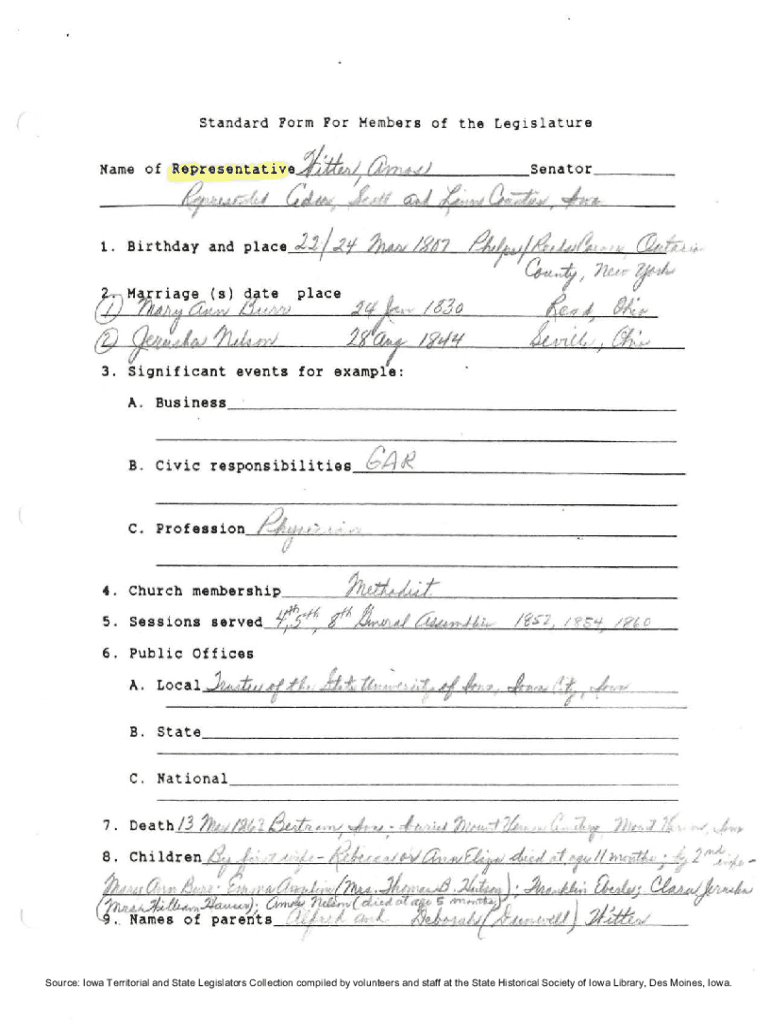 Standard Form For Members of the Legislature
Name of Representative Witter, Amos Senator
Represented Cedar, Scott and Linn Counties, Iowa
1. Birthday and place 22/24 Mar 1807 Phelps/ Ontario
County, New York
2. Marriage (s) date place
(1) Mary Ann Burr 24 Jan 1830 Read, Ohio
(2) Jerusha Nelson 28 Aug 1844 Seville, Ohio
3. Significant events for example:
A. Business
B. Civic responsibilities GAR
C. Profession Physician
4. Church membership Methodist
5. Sessions served 4th, 5th, 8th General Assemblies 1852, 1854, 1860
6. Public Offices
A. Local Trustee of the State University of Iowa, Iowa City, Iowa
B. State
C. National
7. Death 13 Mar 1863 Bertram, Iowa - buried Mount Vernon Cemetery, Mount Vernon, Iowa
8. Children By first wife - Rebecca or Ann Eliza died at age 11 months; by 2nd wife -
Mary Ann Burr; Emma (Mrs. Thomas B. Hutson); Franklin Eberle; Clara Jerusha
(Mrs. William Hauser); Amos Nelson (died at age 5 months)
9. Names of parents Alfred and Deborah (Dunwell) Witter
Source: Iowa Territorial and State Legislators Collection compiled by volunteers and staff at the State Historical Society of Iowa Library, Des Moines, Iowa.